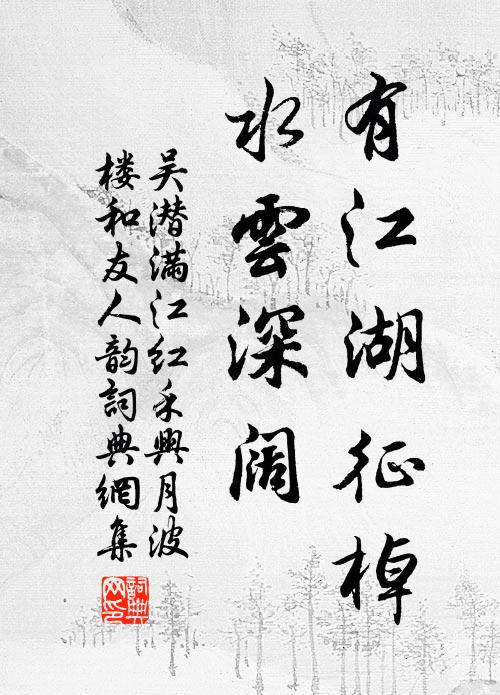 有江湖征棹
水雲深阔
吴潜满江红禾興月波
楼和友人韵詞典網集
詞典